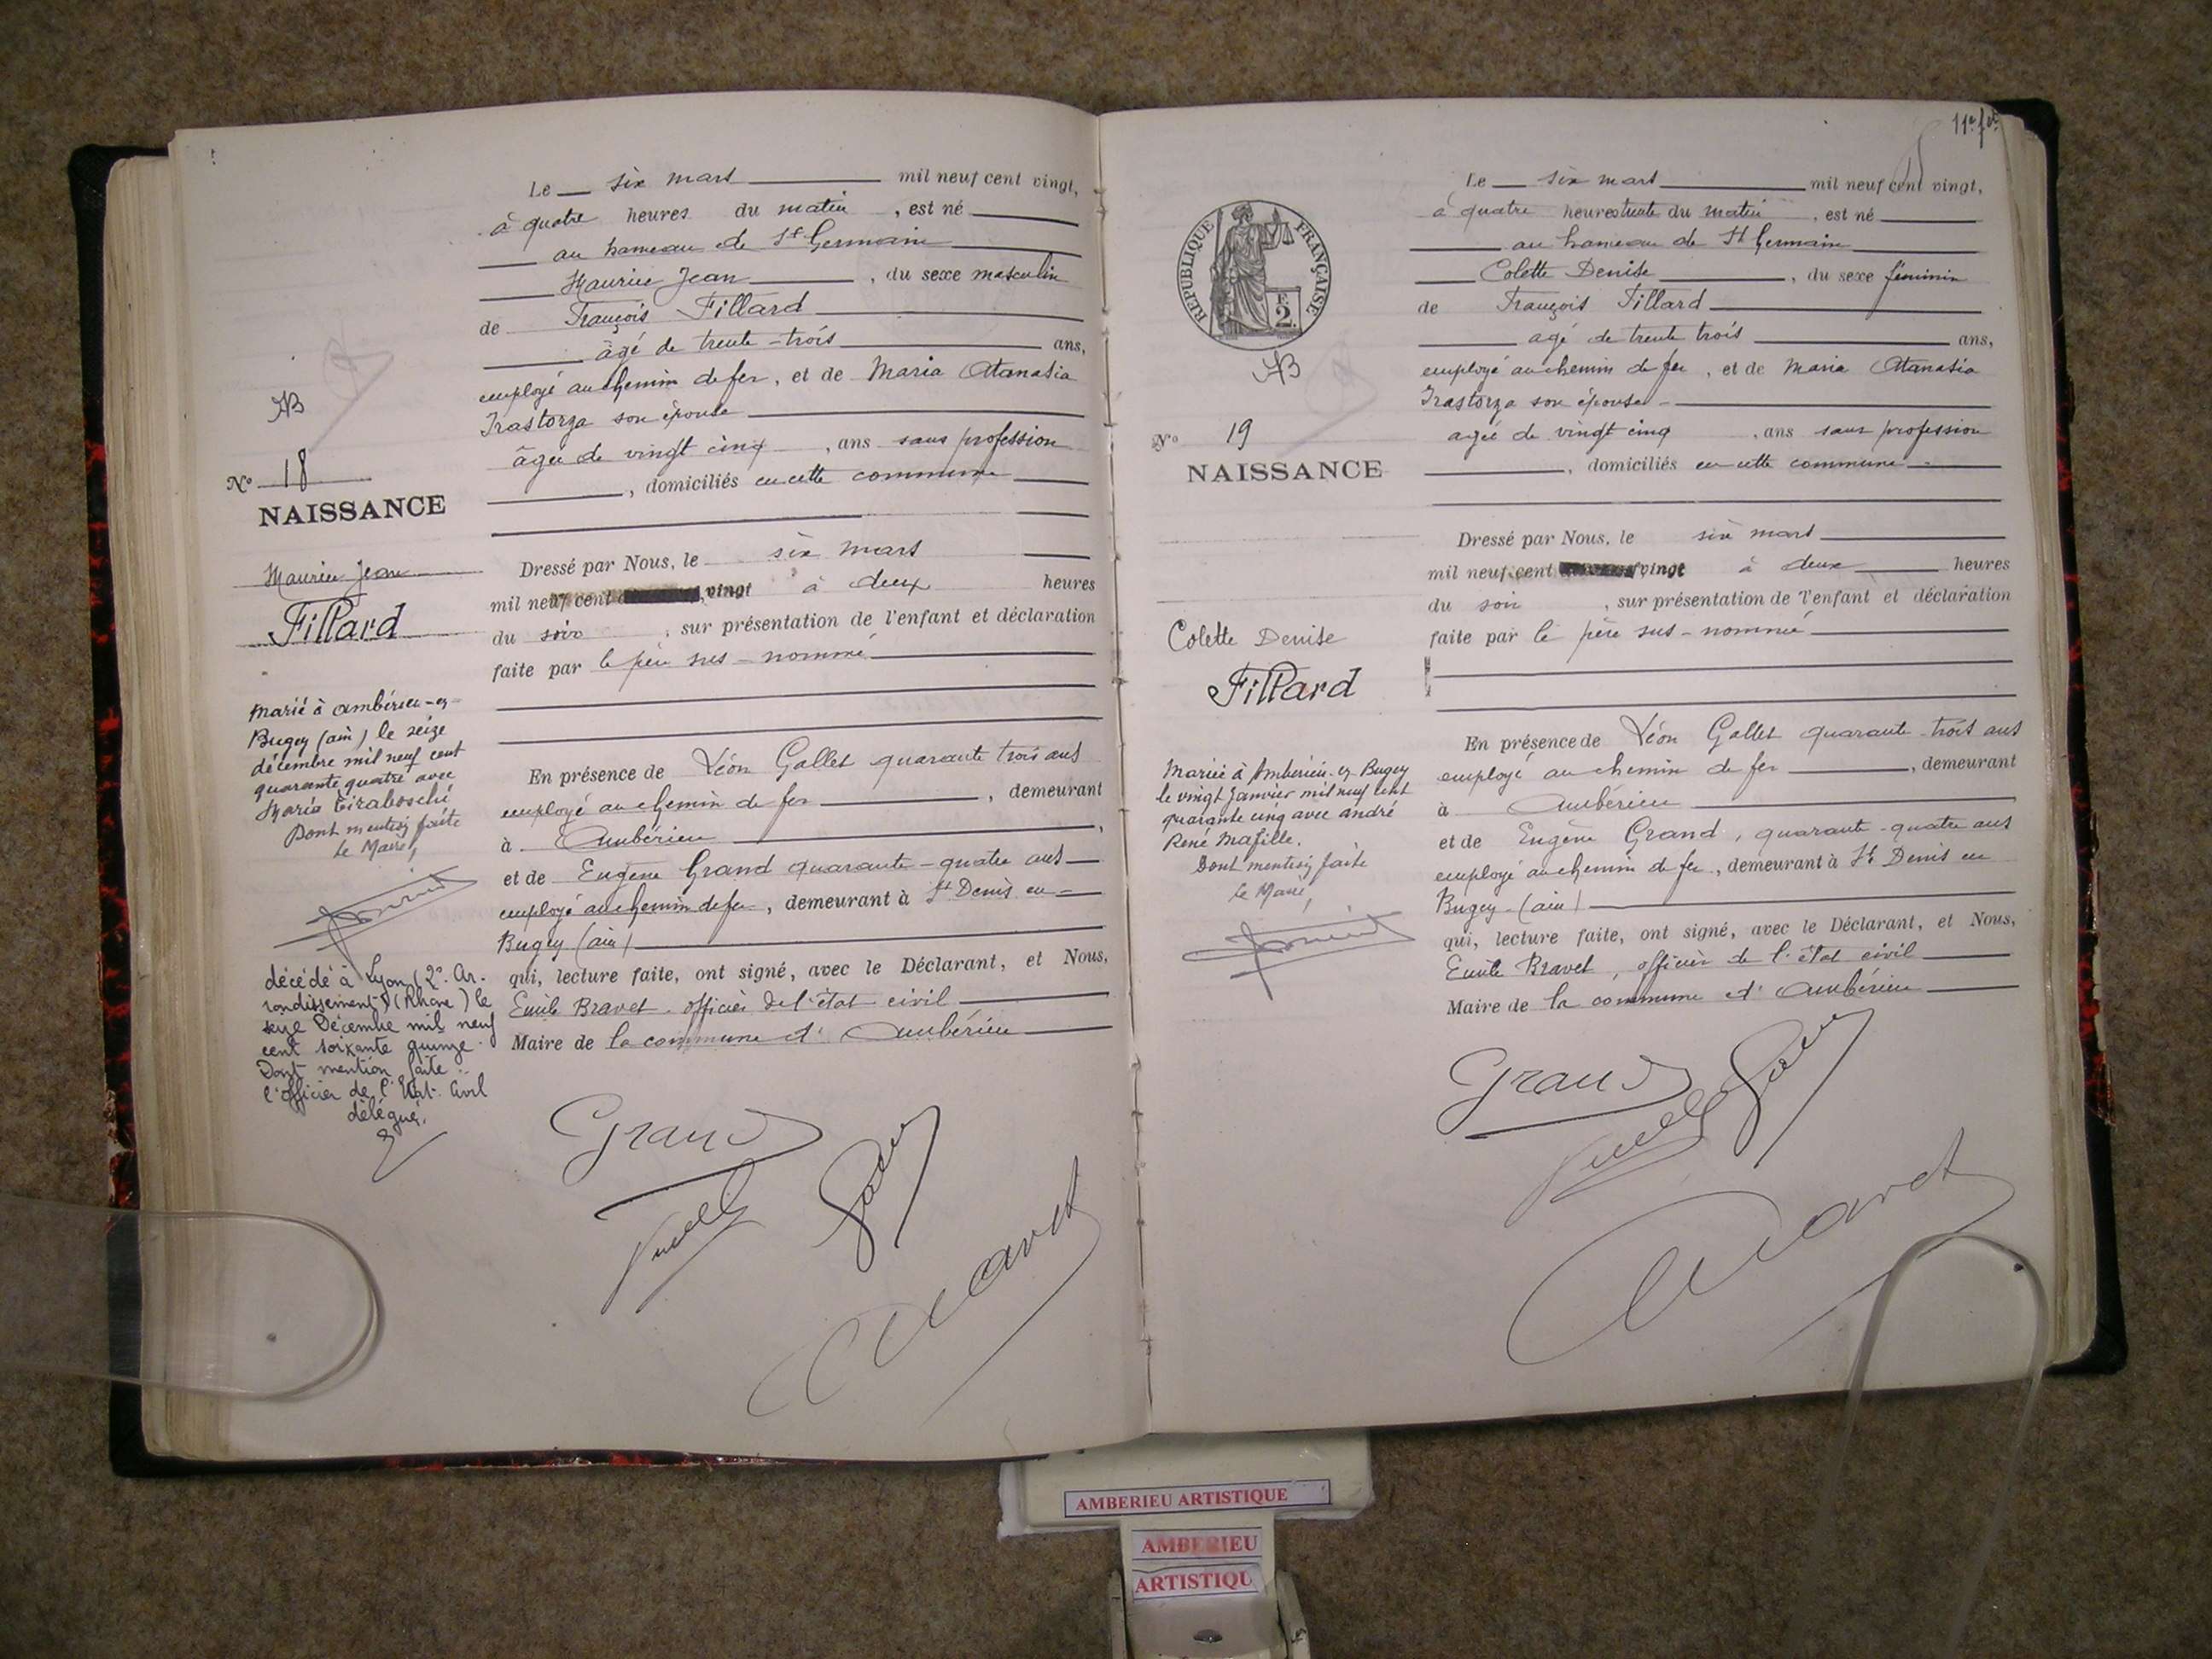 NB
N° 18
NAISSANCE
Maurice Jean
Fillard
Marié à Ambérieu-en-
Bugey (Ain) le seize
décembre mil neuf cent
quarante quatre avec
Maria Tiraboschi
Dont mention faite
le Maire,
décédé à Lyon (2e Ar-
rondissement) (Rhône) le
seize Décembre mil neuf
cent soixante quinze.
Dont mention faite :
l'officier de l'Etat Civil
délégué.
Le six mars mil neuf cent vingt,
à quatre heures du matin, est né
au hameau de St Germain
Maurice Jean, du sexe masculin
de François Fillard
âgé de trente-trois ans,
employé au chemin de fer, et de Maria Atanasia
Irastorza son épouse
âgée de vingt cinq, ans sans profession
, domiciliés en cette commune
Dressé par Nous, le six mars
mil neuf cent vingt à deux heures
du soir, sur présentation de l'enfant et déclaration
faite par le père sus-nommé
En présence de Léon Gallet quarante trois ans
employé au chemin de fer, demeurant
à Ambérieu,
et de Eugène Grand quarante-quatre ans
employé au chemin de fer, demeurant à St Denis en
Bugey (Ain)
qui, lecture faite, ont signé, avec le Déclarant, et Nous,
Emile Bravet officier de l'état civil
Maire de la commune d'Ambérieu
Grand
11e fet
REPUBLIQUE FRANÇAISE
E.
2.
NB
N° 19
NAISSANCE
Colette Denise
Fillard
Mariée à Ambérieu-en-Bugey
le vingt janvier mil neuf cent
quarante cinq avec André
René Mafille.
Dont mention faite
le Maire,
Le six mars mil neuf cent vingt,
à quatre heures trente du matin, est né
au hameau de St Germain
Colette Denise, du sexe féminin
de François Fillard
agé de trente trois ans,
employé au chemin de fer, et de Maria Atanasia
Irastorza son épouse
agée de vingt cinq, ans sans profession
, domiciliés en cette commune
Dressé par Nous, le six mars
mil neuf cent vingt à deux heures
du soir, sur présentation de l'enfant et déclaration
faite par le père sus-nommé
En présence de Léon Gallet quarante-trois ans
employé au chemin de fer, demeurant
à Ambérieu
et de Eugène Grand, quarante-quatre ans
employé au chemin de fer, demeurant à St Denis en
Bugey (Ain)
qui, lecture faite, ont signé, avec le Déclarant, et Nous,
Emile Bravet, officier de l'état civil
Maire de la commune d'Ambérieu
Grand
AMBERIEU ARTISTIQUE
AMBERIEU
ARTISTIQU